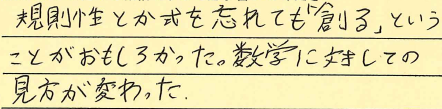 規則性とか式を忘れても「創る」という
ことがおもしろかった。数学に対しての
見方が変わった.